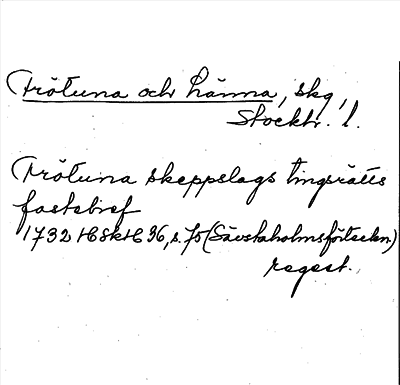 Frötuna och Länna, skg,
Stockh. l.
Frötuna skeppslags tingsrätts
fastebref
1732 HSkH 36, s. 75 (Säfstaholmsförteckn.)
regest.